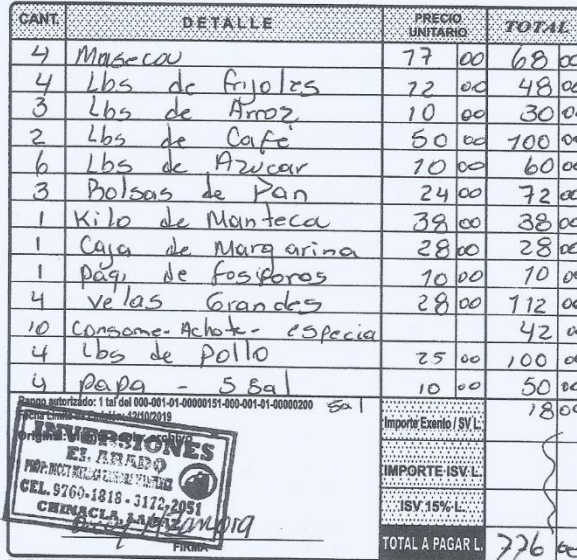 CANT. DETALLE PRECIO UNITARIO TOTAL
4 Maseca 17 00 68 00
4 Lbs de frijoles 12 00 48 00
3 Lbs de Arroz 10 00 30 00
2 Lbs de Café 50 00 100 00
6 Lbs de Azucar 10 00 60 00
3 Bolsas de Pan 24 00 72 00
1 Kilo de Manteca 38 00 38 00
1 Caja de Margarina 28 00 28 00
1 de fosforos 10 00 10 00
4 velas Grandes 28 00 112 00
10 Consome - Achote - especia 42 00
4 Lbs de pollo 25 00 100 00
4 papa - 5 Sal 10 00 50 00
Rango autorizado: 1 tal del 000-001-01-00000151-000-001-01-00000200 Sal 18 00
12/10/2019
Importe Exento / SV L.
INVERSIONES
EL ARADO
CEL. 9760-1818 - 3172-2051
CHINACLA
IMPORTE ISV L.
ISV 15% L.
FIRMA
TOTAL A PAGAR L. 776 00